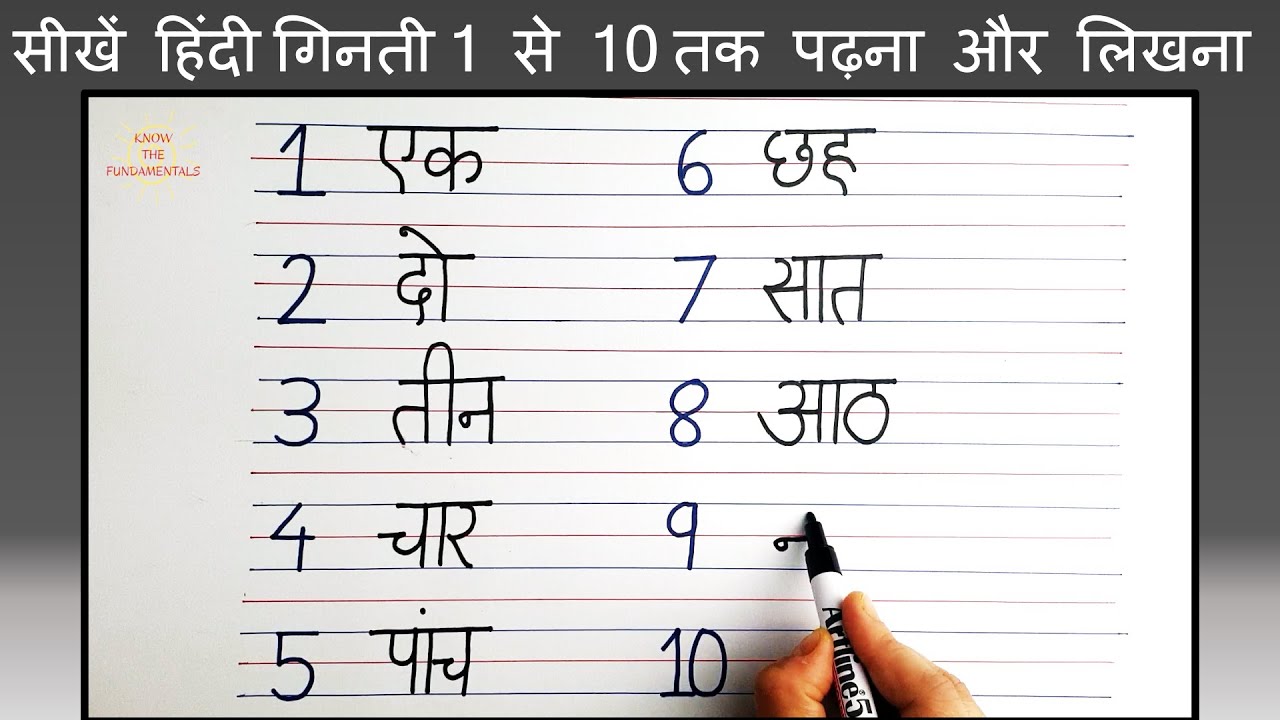 सीखें हिंदी गिनती 1 से 10 तक पढ़ना और लिखना
KNOW
THE
FUNDAMENTALS
1 एक
2 दो
3 तीन
4 चार
5 पांच
6 छह
7 सात
8 आठ
9
10
Artline 5